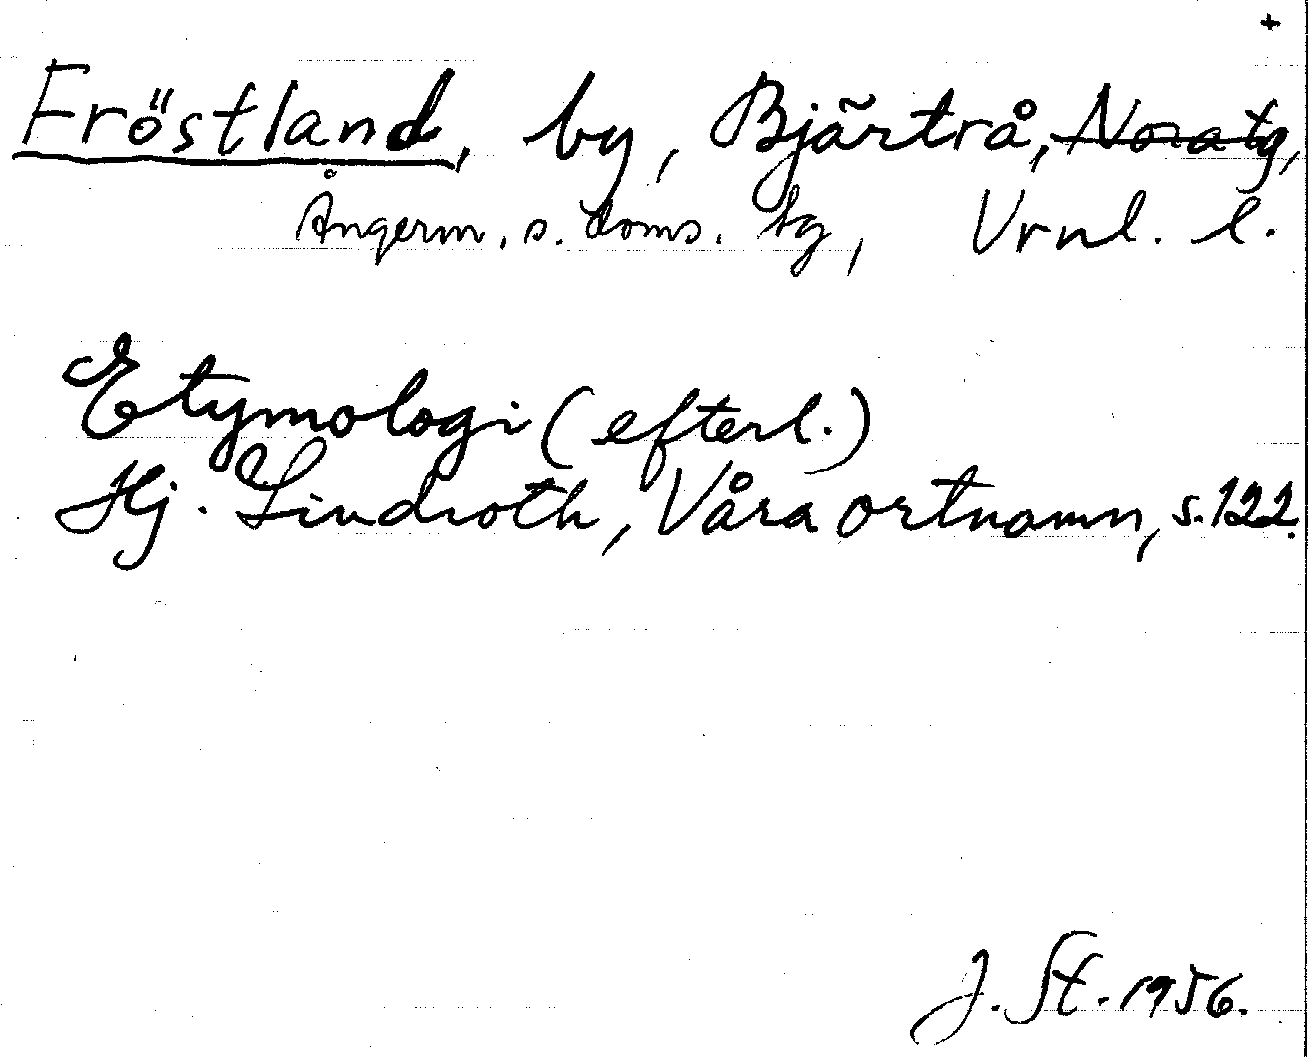 +
Fröstland, by, Bjärtrå, Nora tg,
Ångerm. s. doms. tg, Vrnl. l.
Etymologi (efterl.)
Hj. Lindroth, Våra ortnamn, s. 122.
J. St. 1956.